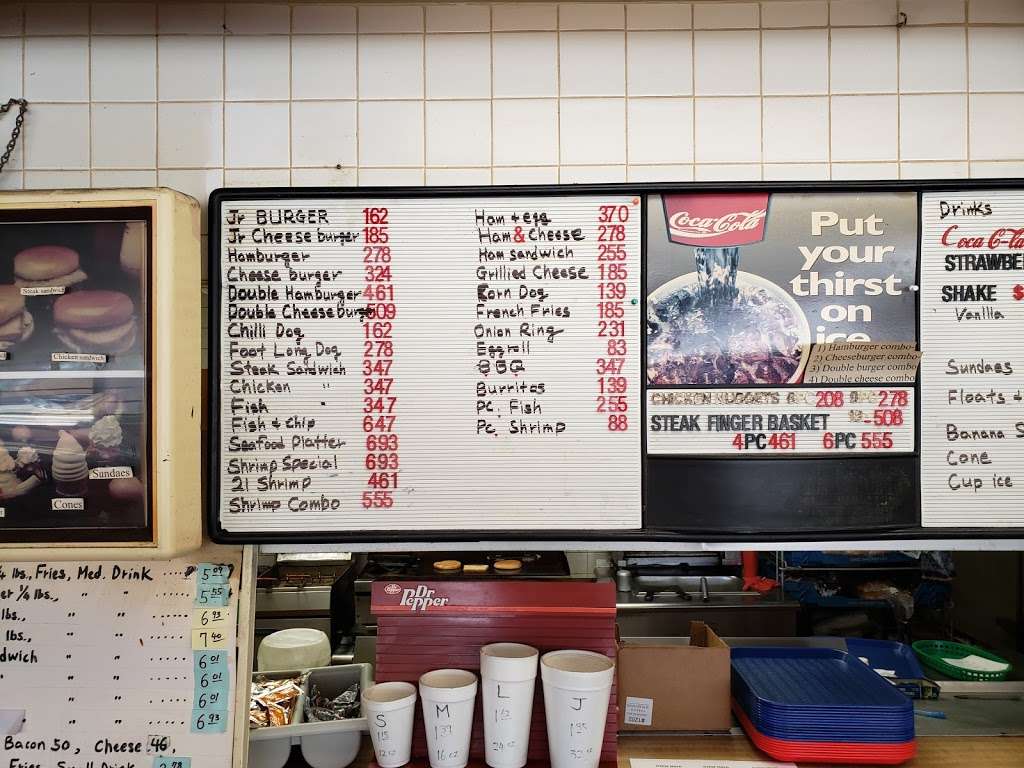 Jr BURGER 162
Jr Cheese burger 185
Hamburger 278
Cheese burger 324
Double Hamburger 461
Double Cheeseburg 509
Chilli Dog 162
Foot Long Dog 278
Steak Sandwich 347
Chicken " 347
Fish " 347
Fish & chip 647
Seafood Platter 693
Shrimp Special 693
21 Shrimp 461
Shrimp Combo 555
Ham & egg 370
Ham & Cheese 278
Ham sandwich 255
Grillied Cheese 185
Corn Dog 139
French Fries 185
Onion Ring 231
Eggroll 83
BBQ 347
Burritos 139
PC. Fish 255
Pc. Shrimp 88
Coca-Cola
Put
your
thirst
on
ice
1) Hamburger combo
2) Cheeseburger combo
3) Double burger combo
4) Double cheese combo
CHICKEN NUGGETS 6PC 208 9PC 278
18-508
STEAK FINGER BASKET
4PC 461 6PC 555
Drinks
Coca-Cola
STRAWBE
SHAKE $
Vanilla
Sundaes
Floats &
Banana S
Cone
Cup ice
Steak sandwich
Chicken sandwich
Sundaes
Cones
1/4 lbs., Fries, Med. Drink ..... 5 09
er 1/4 lbs., " " ..... 5 55
lbs., " " ..... 6 93
lbs., " " ..... 7 40
dwich " " ..... 6 01
" " ..... 6 01
" " ..... 6 01
" " ..... 6 93
Bacon 50, Cheese .46,
Fries, Small Drink
Dr Pepper
S
1 15
12 oz
M
1 39
16 oz
L
1 62
24 oz
J
1 85
32 oz